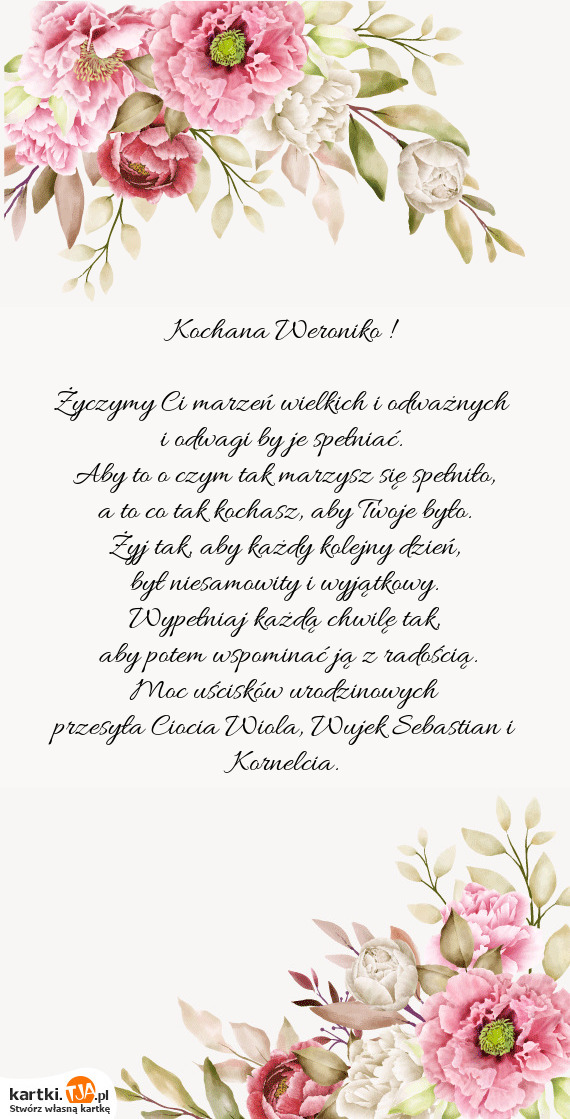 Kochana Weroniko !
Życzymy Ci marzeń wielkich i odważnych
i odwagi by je spełniać.
Aby to o czym tak marzysz się spełniło,
a to co tak kochasz, aby Twoje było.
Żyj tak, aby każdy kolejny dzień,
był niesamowity i wyjątkowy.
Wypełniaj każdą chwilę tak,
aby potem wspominać ją z radością.
Moc uścisków urodzinowych
przesyła Ciocia Wiola, Wujek Sebastian i
Kornelcia.
kartki.TJA.pl
Stwórz własną kartkę